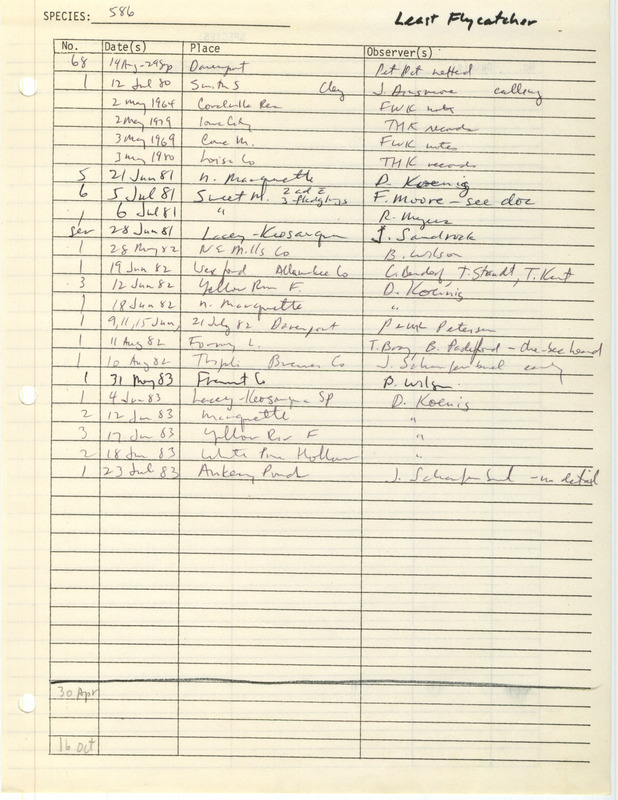 SPECIES: 586 Least Flycatcher
No. Date(s) Place Observer(s)
68 19Aug-29Sep Davenport Pet Pet netted
1 12 Jul 80 Smiths Clay J. Dinsmore calling
2 May 1964 Coralville Res FWK notes
2 May 1979 Iowa City THK records
3 May 1969 Cone M. FWK notes
3 May 1980 Louisa Co THK records
5 21 Jun 81 N. Marquette D. Koenig
6 5 Jul 81 Sweet M. 2 ad 2 3 fledglings F. Moore - see doc
1 6 Jul 81 " R. Myers
sev 28 Jun 81 Lacey-Keosauqua J. Sandrock
1 28 May 82 NE Mills Co B. Wilson
1 19 Jun 82 Wexford Allamakee Co C. Bendorf, T. Staudt, T. Kent
3 12 Jun 82 Yellow River F. D. Koenig
1 18 Jun 82 N. Marquette "
1 9,11,15 Jun, 21 July 82 Davenport Peter Petersen
1 11 Aug 82 Forney L. T. Bray, B. Padelford - che-bec heard
1 10 Aug 82 Bremer Co J. Schaufenbuel early
1 31 May 83 Fremont Co B. Wilson
1 4 Jun 83 Lacey-Keosauqua SP D. Koenig
2 12 Jun 83 Marquette "
3 17 Jun 83 Yellow River F "
2 18 Jun 83 White Pine Hollow "
1 23 Jul 83 Ankeny Pond J. Schaufenbuel - no detail
30 Apr
16 Oct